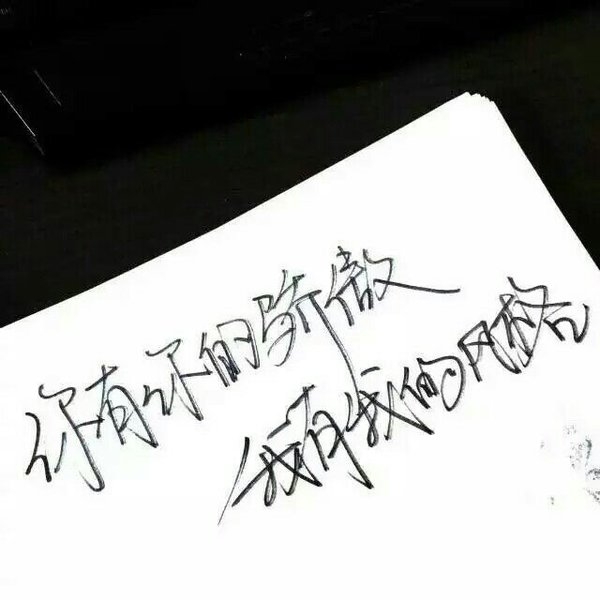 你有你的骄傲
我有我的风格